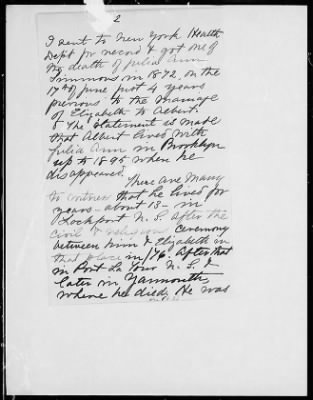 2
I sent to New York Health
Dept for record & got one of
the death of Julia Ann
Simmons in 1872, on the
17th of June just 4 years
previous to the marriage
of Elizabeth to Albert.
& The statement is made
that Albert lived with
Julia Ann in Brooklyn
up to 1895 when he
disappeared.
There are many
to witness that he lived for
years - about 13 - in
Lockport N. S. after the
civil & religious ceremony
between him & Elizabeth in
that place in /76. After that
in Port La Tour N. S. &
later in Yarmouth,
where he died. He was